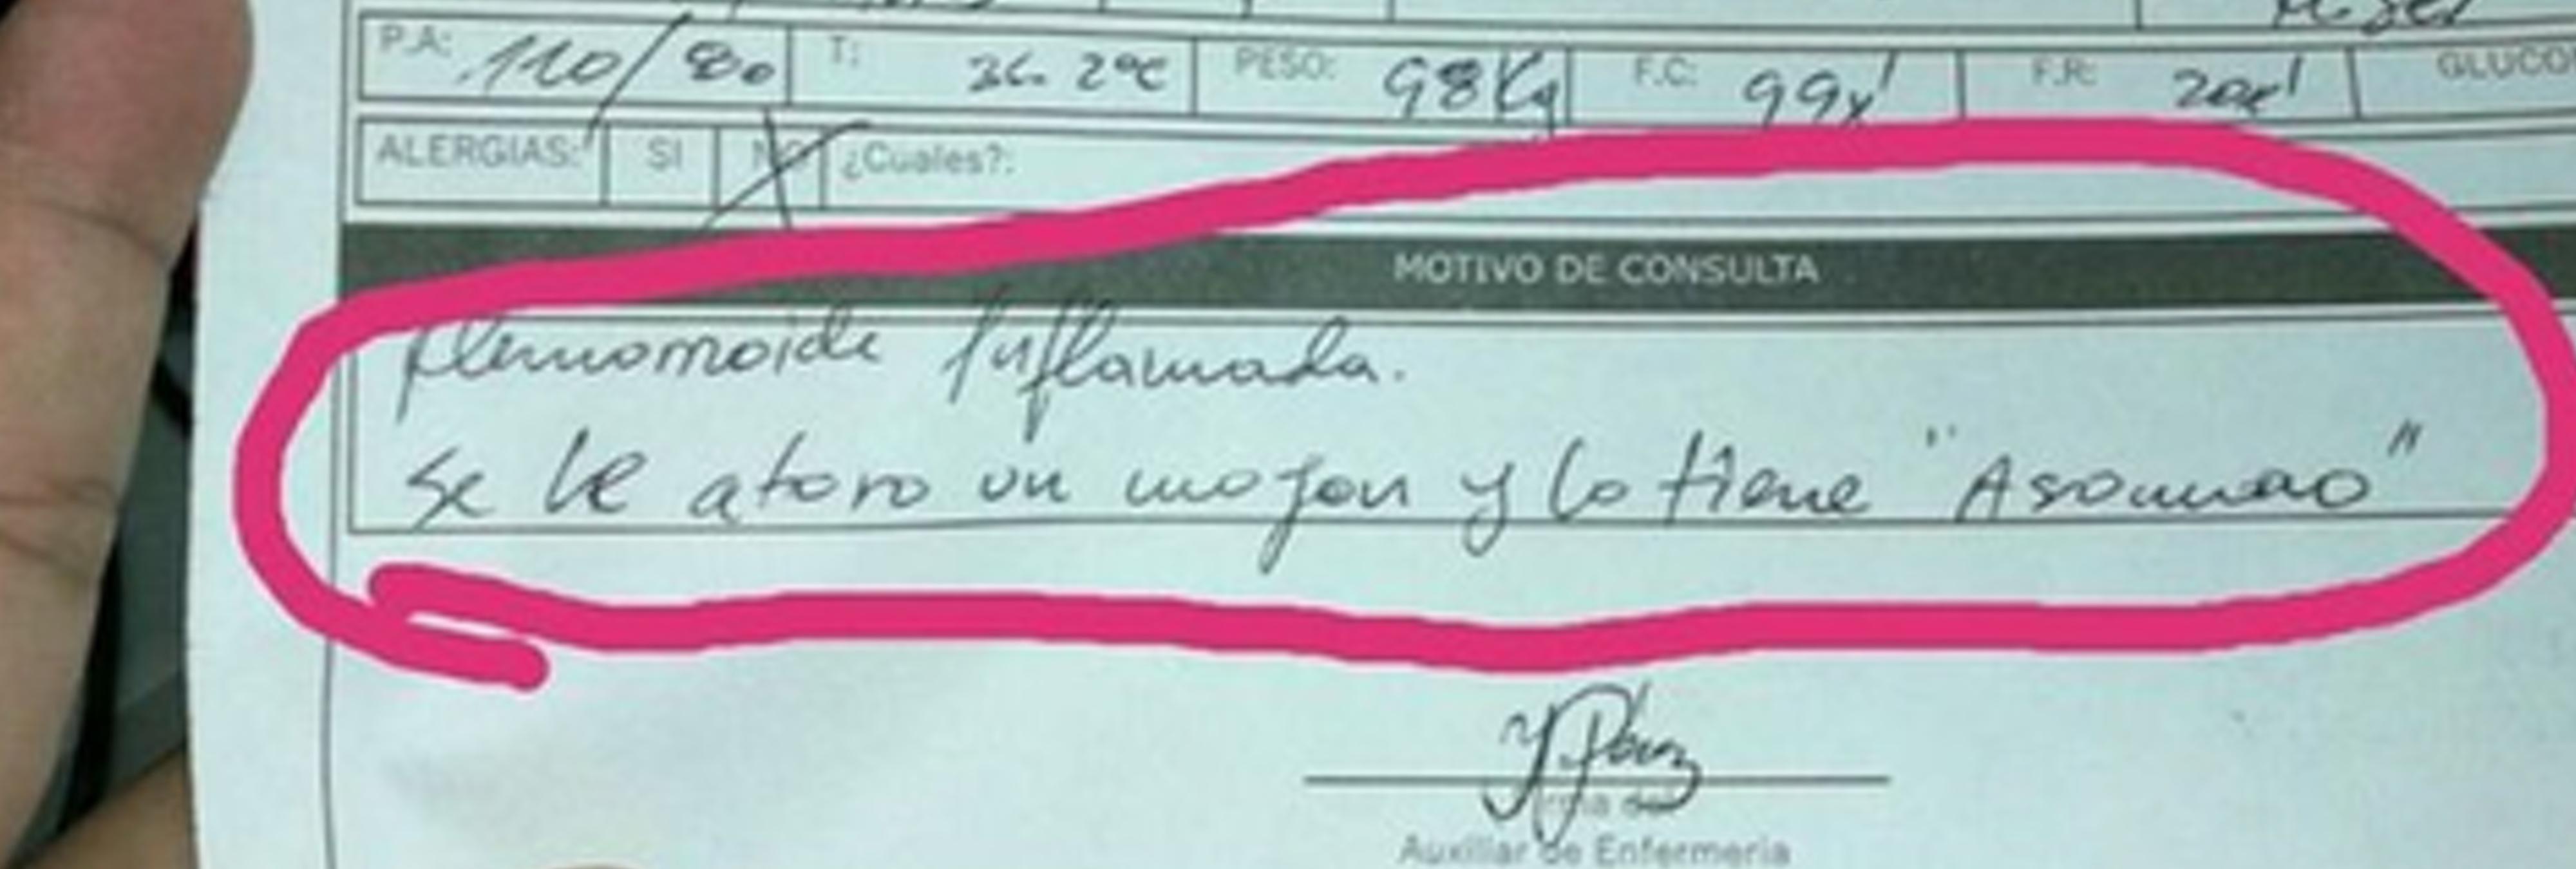 P.A: 110/80 T: 36.2°C PESO: 98Kg F.C: 99x' F.R: 20x' GLUCO
ALERGIAS: SI NO ¿Cuales?:
MOTIVO DE CONSULTA
Hemorroide Inflamada.
se le atoro un mojon y lo tiene "Asomao"
Y. Pérez
Firma del
Auxiliar de Enfermeria